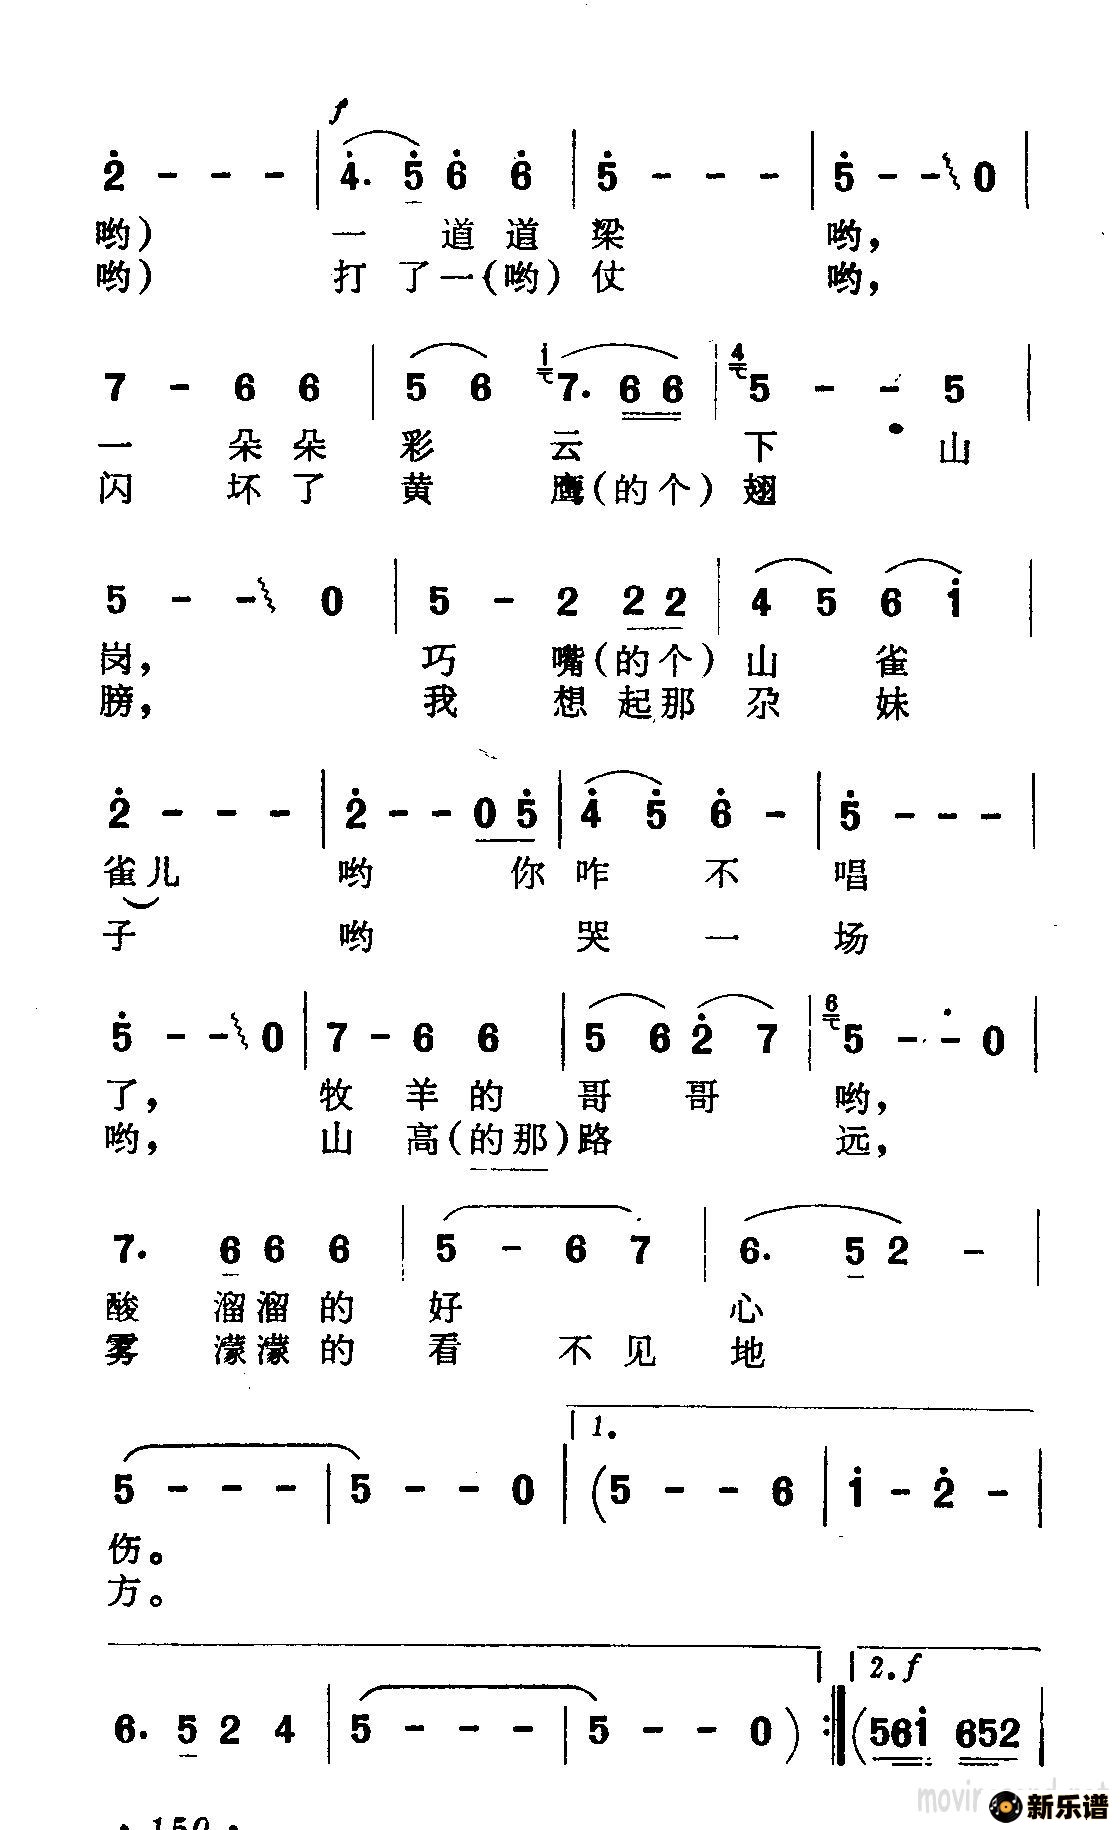 f
2 - - - | 4. 5 6 6 | 5 - - - | 5 - - 0 |
哟） 一 道 道 梁 哟，
哟） 打 了 一（哟）仗 哟，
7 - 6 6 | 5 6 1 7. 6 6 | 4 5 - - 5 |
一 朵 朵 彩 云 下 山
闪 坏 了 黄 鹰（的 个）翅
5 - - 0 | 5 - 2 2 2 | 4 5 6 1 |
岗， 巧 嘴（的 个）山 雀
膀， 我 想 起 那 尕 妹
2 - - - | 2 - - 0 5 | 4 5 6 - | 5 - - - |
雀儿 哟 你 咋 不 唱
子 哟 哭 一 场
5 - - 0 | 7 - 6 6 | 5 6 2 7 | 6 5 - - 0 |
了， 牧 羊 的 哥 哥 哟，
哟， 山 高（的 那）路 远，
7. 6 6 6 | 5 - 6 7 | 6. 5 2 - |
酸 溜 溜 的 好 心
雾 濛 濛 的 看 不 见 地
1.
5 - - - | 5 - - 0 | (5 - - 6 | 1 - 2 - |
伤。
方。
2. f
6. 5 2 4 | 5 - - - | 5 - - 0 ) :| (561 652 |
· 150 ·
新乐谱